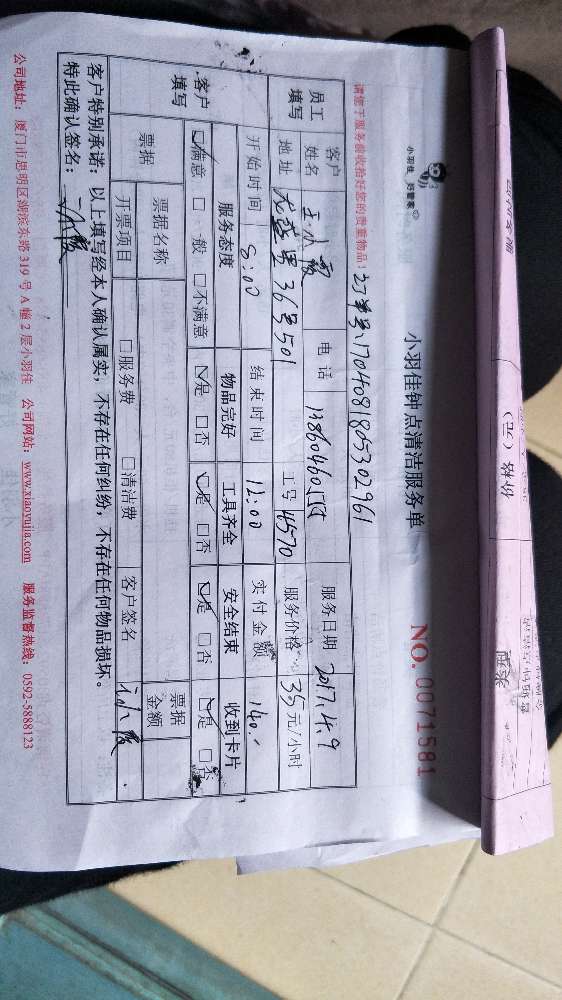 小羽佳 好管家
小羽佳钟点清洁服务单
NO. 0071581
请您于服务前收拾好您的贵重物品! 订单号:1704081805302961
员工填写 客户姓名 王小霞 电话 服务日期 2017.4.9
地址 36号501 工号 4570 服务价格 35元/小时
客户填写 开始时间 8:00 结束时间 12:00 实付金额 140.
服务态度 物品完好 工具齐全 安全结束 收到卡片
☑满意 □一般 □不满意 ☑是 □否 ☑是 □否 ☑是 □否 ☑是 □否
票据 票据名称 票据金额
开票项目 □服务费 □清洁费 客户签名
客户特别承诺:以上填写经本人确认属实,不存在任何纠纷,不存在任何物品损坏。
特此确认签名:
公司地址:厦门市思明区湖滨东路319号A幢2层小羽佳 公司网站:www.xiaoyujia.com 服务监督热线:0592-5888123